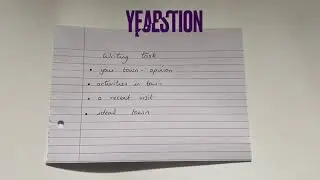 Writing task
• your town - opinion
• activities in town
• a recent visit
• ideal town